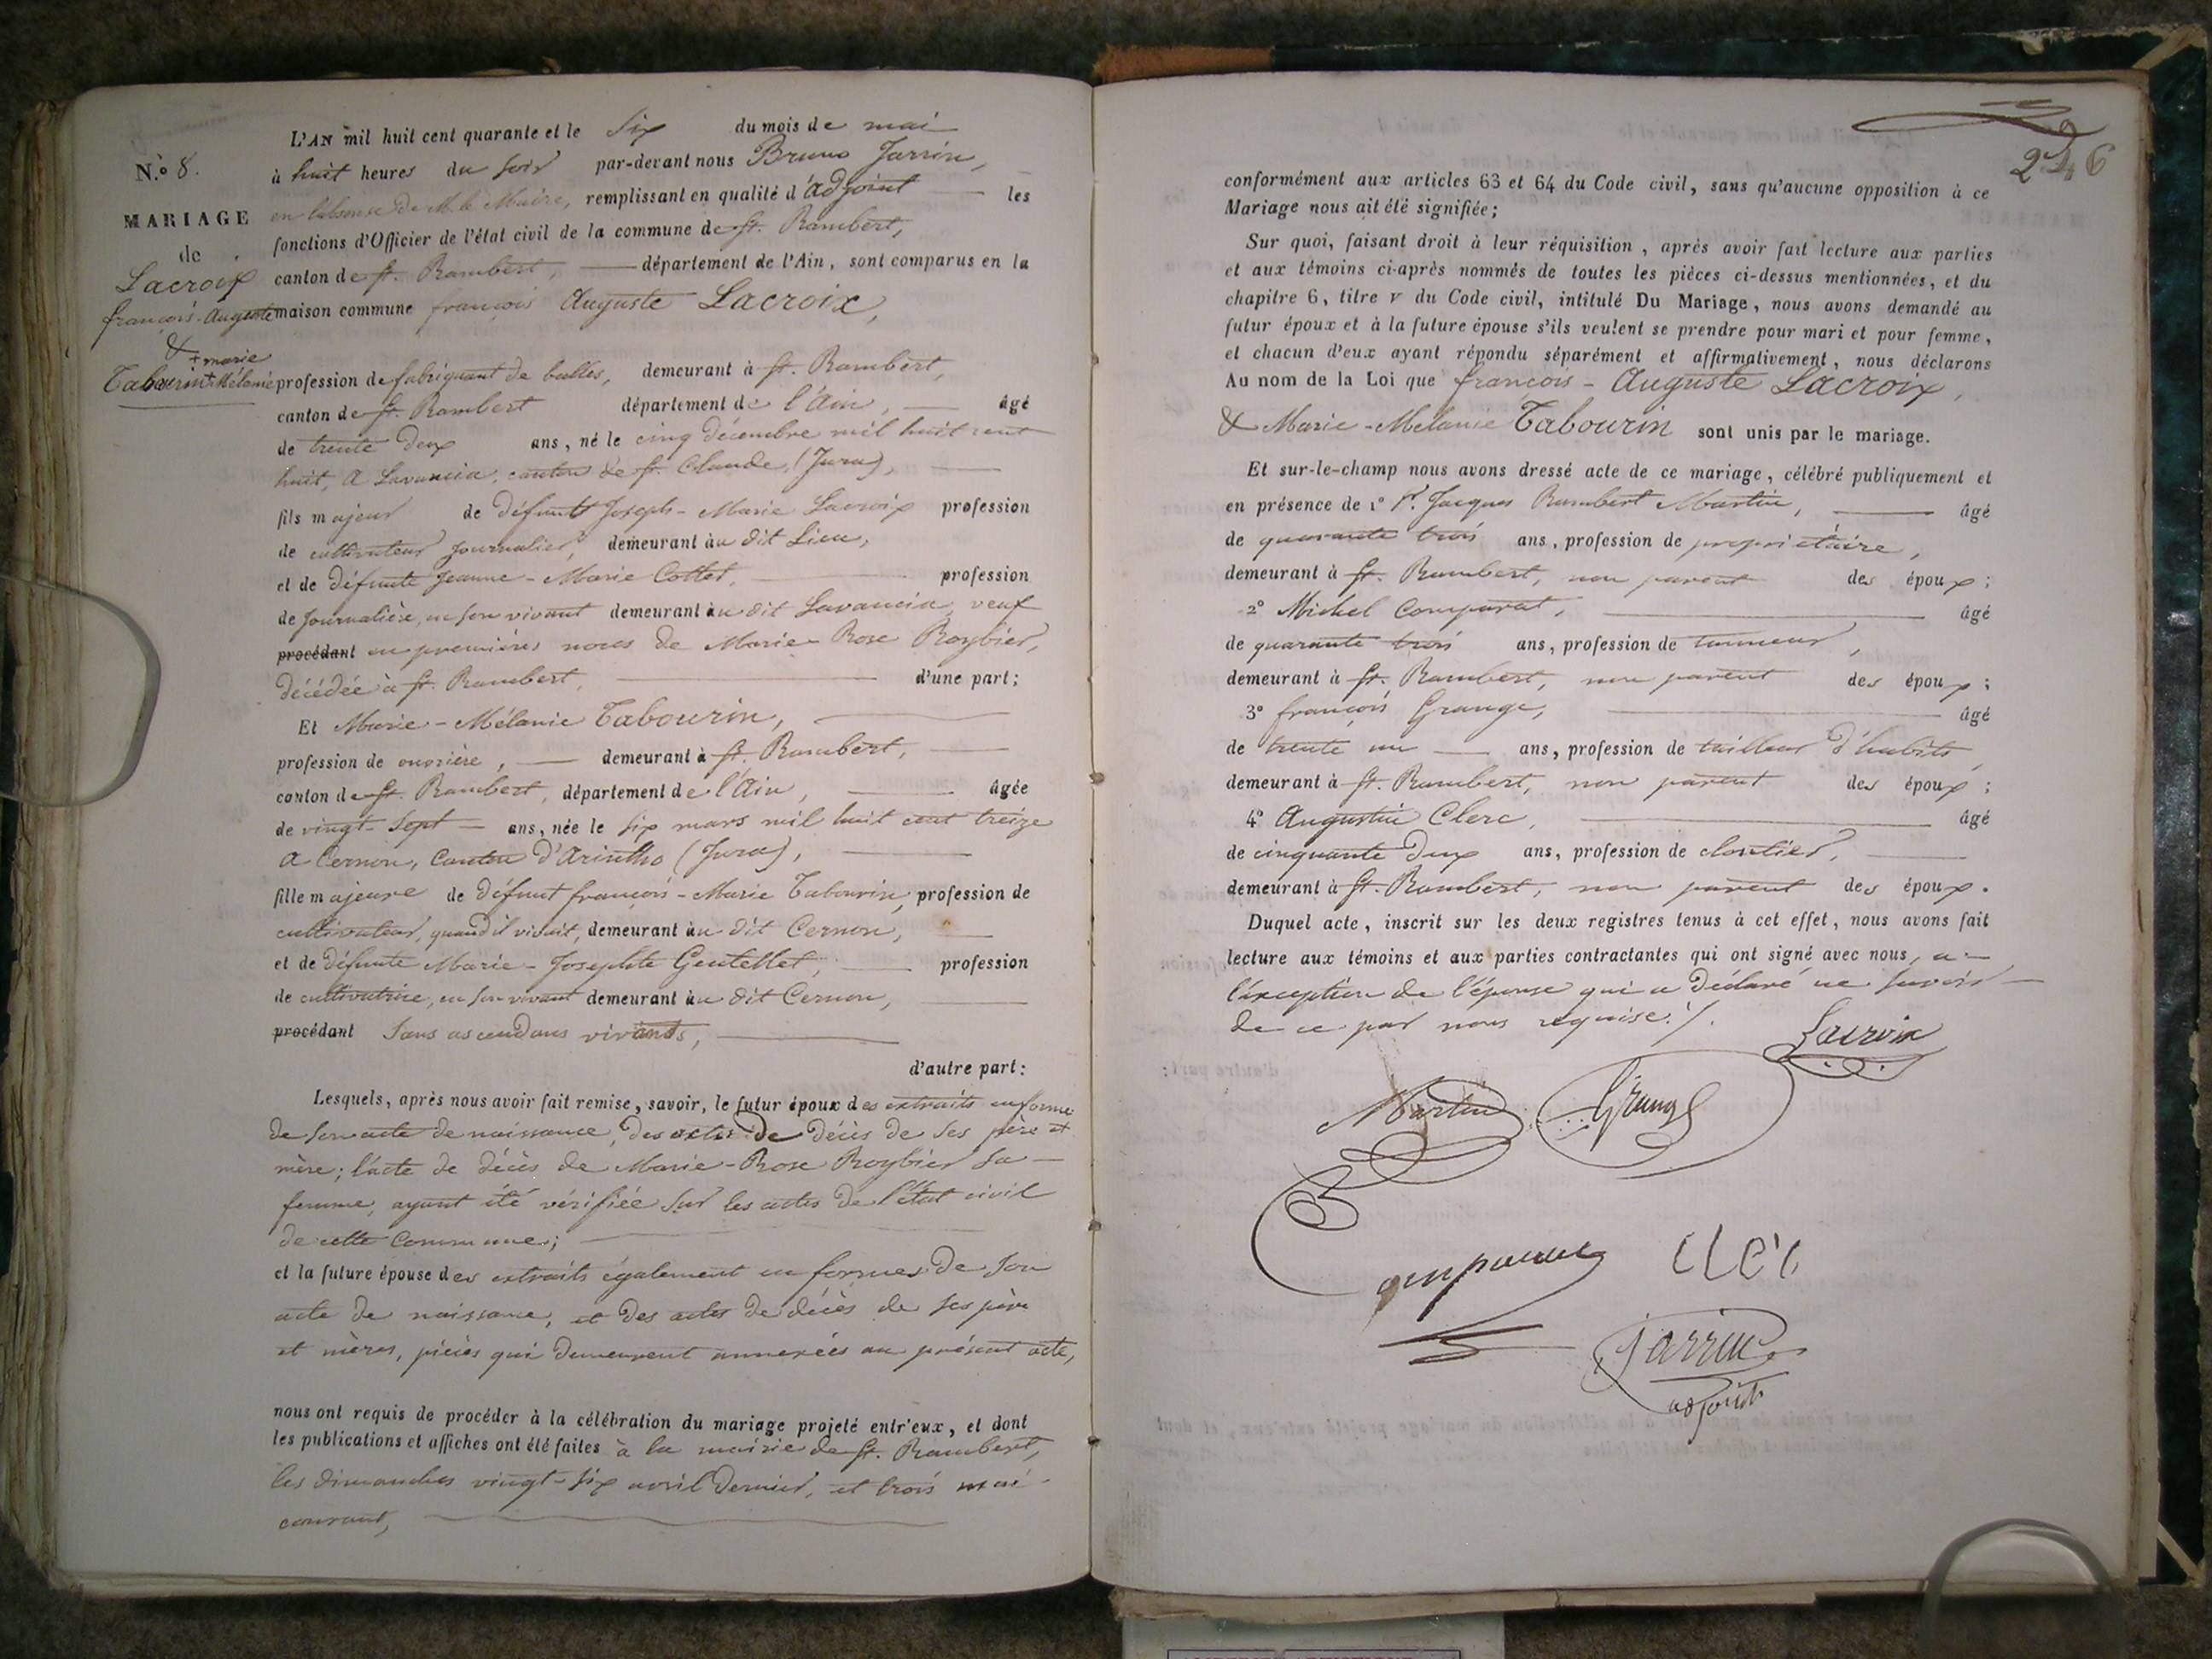 N.º 8.
MARIAGE
de
Lacroix
françois-Auguste
&
+ marie
Tabourin + Mélanie
L'AN mil huit cent quarante et le six du mois de mai
à huit heures du soir par-devant nous Bruno Jarrin,
en l'absence de M. le Maire, remplissant en qualité d'adjoint les
fonctions d'Officier de l'état civil de la commune de St. Rambert,
canton de St. Rambert, département de l'Ain, sont comparus en la
maison commune françois Auguste Lacroix,
profession de fabriquant de balles, demeurant à St. Rambert,
canton de St. Rambert département de l'Ain, âgé
de trente deux ans, né le cinq décembre mil huit cent
huit, à Lavancia, canton de St. Claude, (Jura),
fils majeur de défunt Joseph-Marie Lacroix profession
de cultivateur journalier, demeurant au dit Lieu,
et de défunte Jeanne-Marie Cottet, profession
de journalière, en son vivant demeurant au dit Lavancia, veuf
procédant en premières noces de Marie-Rose Roybier,
décédée à St. Rambert, d'une part;
Et Marie-Mélanie Tabourin,
profession de ouvrière, demeurant à St. Rambert,
canton de St. Rambert, département de l'Ain, âgée
de vingt-sept ans, née le six mars mil huit cent treize
à Cernon, Canton d'Arintho (Jura),
fille majeure de défunt françois-Marie Tabourin, profession de
cultivateur, quand il vivait, demeurant au dit Cernon,
et de défunte Marie-Josephte Gentellet, profession
de cultivatrice, en son vivant demeurant au dit Cernon,
procédant Sans ascendans vivants,
d'autre part:
Lesquels, après nous avoir fait remise, savoir, le futur époux des extraits en forme
de son acte de naissance, des actes de décès de ses père et
mère; l'acte de décès de Marie-Rose Roybier sa
femme, ayant été vérifiée sur les actes de l'état civil
de cette Commune;
et la future épouse des extraits également en formes de son
acte de naissance, et des actes de décès de ses père
et mères, pièces qui demeurent annexées au présent acte,
nous ont requis de procéder à la célébration du mariage projeté entr'eux, et dont
les publications et affiches ont été faites à la mairie de St. Rambert,
les dimanches vingt-six avril dernier, et trois mai
courant,
246
conformément aux articles 63 et 64 du Code civil, sans qu'aucune opposition à ce
Mariage nous ait été signifiée;
Sur quoi, faisant droit à leur réquisition, après avoir fait lecture aux parties
et aux témoins ci-après nommés de toutes les pièces ci-dessus mentionnées, et du
chapitre 6, titre v du Code civil, intitulé Du Mariage, nous avons demandé au
futur époux et à la future épouse s'ils veulent se prendre pour mari et pour femme,
et chacun d'eux ayant répondu séparément et affirmativement, nous déclarons
Au nom de la Loi que françois-Auguste Lacroix,
& Marie-Mélanie Tabourin sont unis par le mariage.
Et sur-le-champ nous avons dressé acte de ce mariage, célébré publiquement et
en présence de 1º Jacques Rambert Martin, âgé
de quarante trois ans, profession de propriétaire,
demeurant à St. Rambert, non parent des époux;
2º Michel Comparat, âgé
de quarante trois ans, profession de tanneur,
demeurant à St. Rambert, non parent des époux;
3º françois Grange, âgé
de trente un ans, profession de tailleur d'habits
demeurant à St. Rambert, non parent des époux;
4º Augustin Clerc, âgé
de cinquante deux ans, profession de cloutier,
demeurant à St. Rambert, non parent des époux.
Duquel acte, inscrit sur les deux registres tenus à cet effet, nous avons fait
lecture aux témoins et aux parties contractantes qui ont signé avec nous, a
l'exception de l'épouse qui a déclaré ne savoir
de ce par nous requise./.
Lacroix
Martin Grange
Comparat Clerc
Jarrin
adjoint